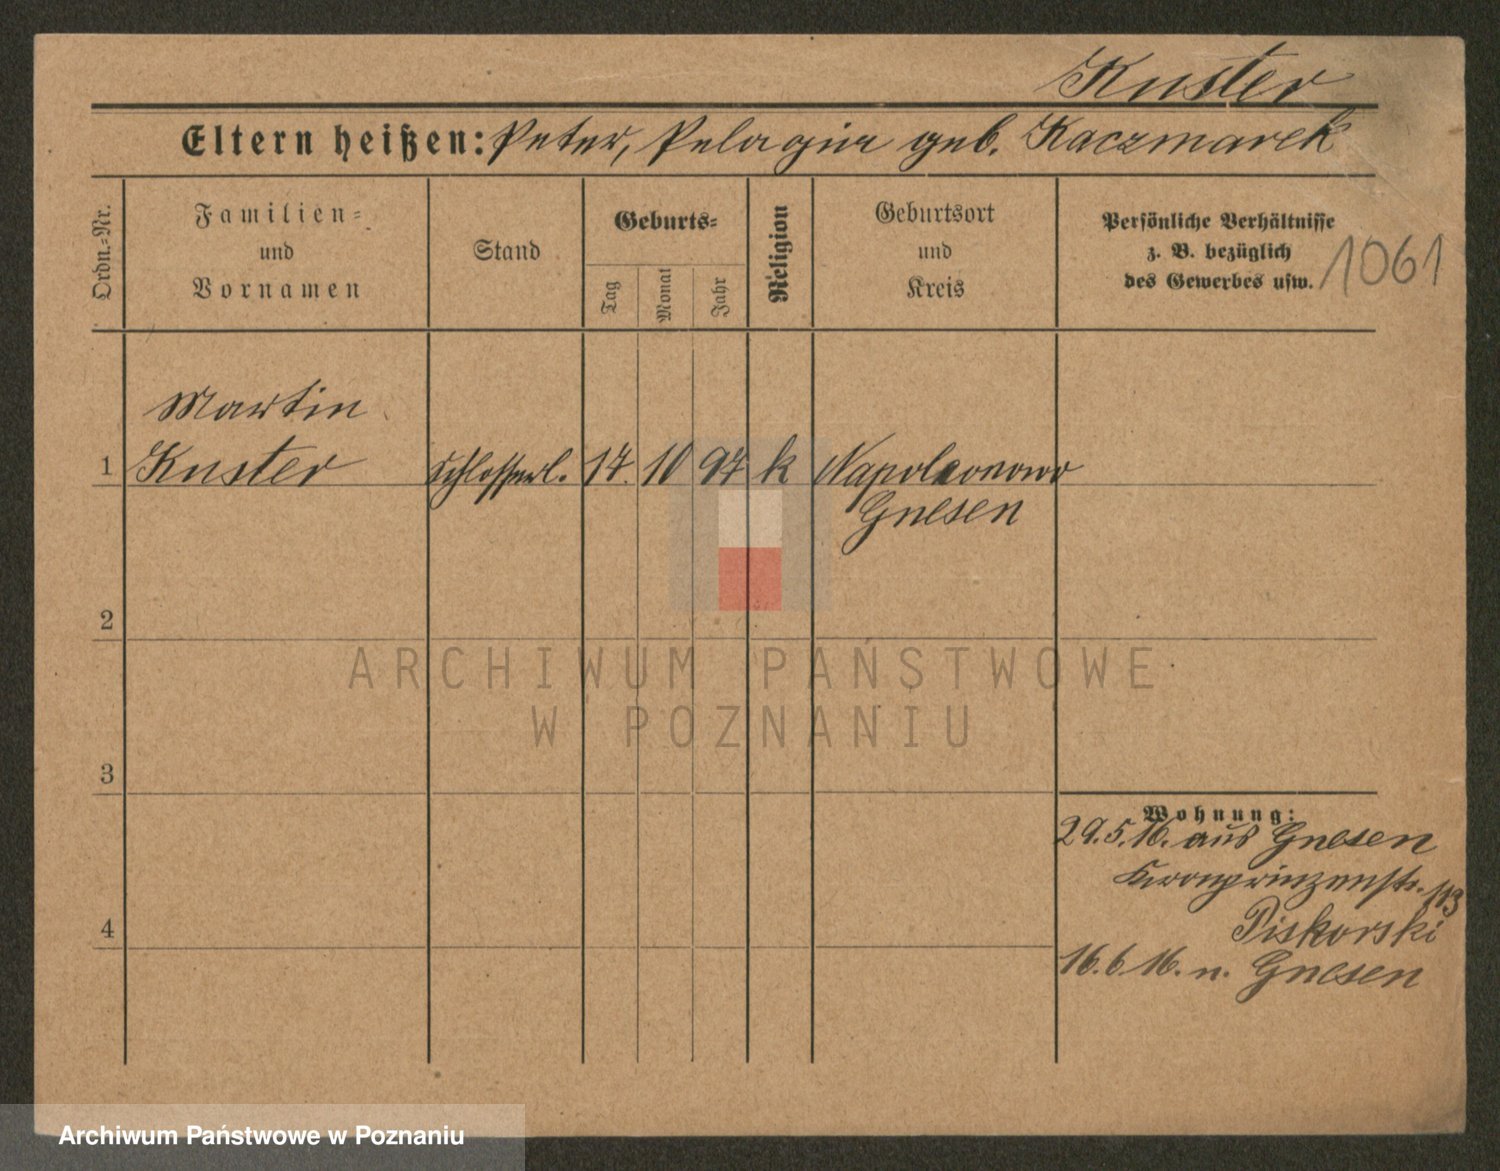 Kuster
Eltern heißen: Peter, Pelagia geb. Kaczmarek
Ordn.-Nr.
Familien-
und
Vornamen
Stand
Geburts-
Tag
Monat
Jahr
Religion
Geburtsort
und
Kreis
Persönliche Verhältnisse
z. B. bezüglich
des Gewerbes usw.
1061
Martin
1 Kuster Schlosserl. 17. 10 97 k Napoleonowo
Gnesen
2
3
4
Wohnung:
29.5.16. aus Gnesen
Kronprinzenstr. 113
Piskorski
16.6.16. n. Gnesen
ARCHIWUM PAŃSTWOWE
W POZNANIU
Archiwum Państwowe w Poznaniu